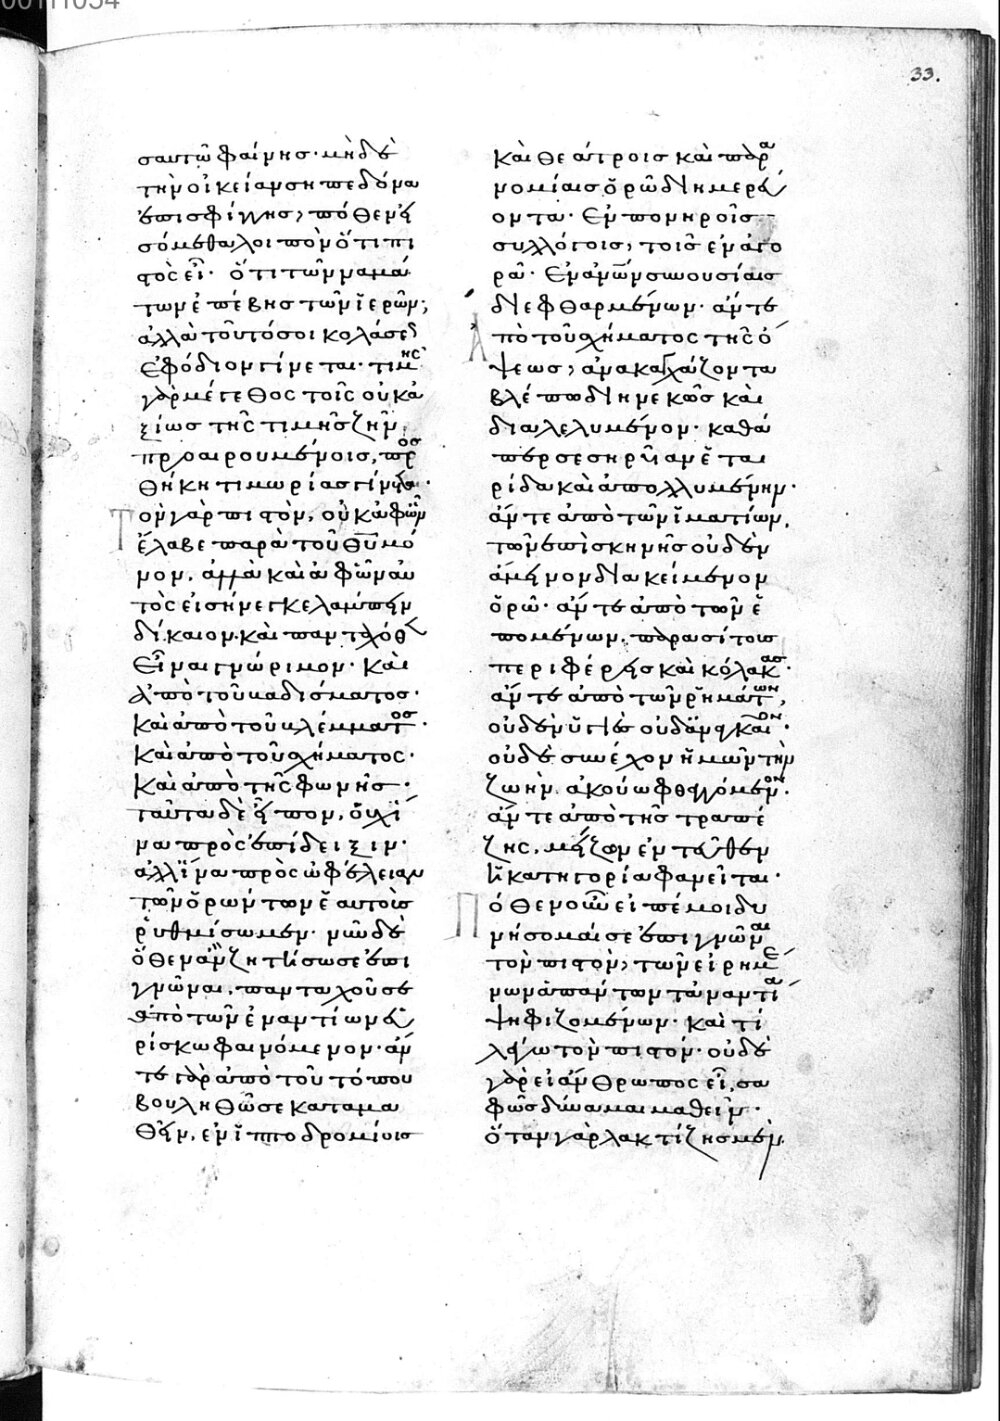 33.
σαυτῶ φαίνησ· μὴ δὲ
τὴν οἰκείαν σηπεδόνα
ἐπισφίγγης, πόθεν εἰ
σόμεθα λοιπὸν ὅτι πι
στὸς εἶ· ὅτι τῶν ναμά
των ἐπέβης τῶν ἱερῶν;
ἀλλὰ τοῦτό σοι κολάσεω
ἐφόδιον γίνεται· τιμῆς
γὰρ μέγεθος τοῖς οὐκ ἀ
ξίως τῆς τιμῆς ζῆν
προαιρουμένοις, προσ
θήκη τιμωρίας γίνεται·
Τὸν γὰρ πιστὸν, οὐκ ἀφ' ὧν
ἔλαβε παρὰ τοῦ θῦ μό
νον, ἀλλὰ καὶ ἀφ' ὧν αὐ
τὸς εἰσήνεγκε λάμπειν
δίκαιον. καὶ πανταχόθεν
εἶναι γνώριμον· καὶ
ἀπὸ τοῦ βαδίσματοσ·
καὶ ἀπὸ τοῦ βλέμματοσ·
καὶ ἀπὸ τοῦ σχήματος·
καὶ ἀπὸ τῆς φωνῆσ·
ταῦτα δὲ εἶπον, οὐχ ἵ
να πρὸς ἐπίδειξιν·
ἀλλ' ἵνα πρὸς ὠφέλειαν
τῶν ὁρώντων ἑαυτοὺσ
ῥυθμίσωμεν· νῦν δὲ
ὅθεν ἂν ζητήσω σε ἐπι
γνῶναι, πανταχοῦ σε
ἀπὸ τῶν ἐναντίων εὑ
ρίσκω φαινόμενον· ἄν
τε γὰρ ἀπὸ τοῦ τόπου
βουληθῶ σε καταμα
θεῖν, ἐν ἱπποδρομίοισ
καὶ θεάτροισ καὶ παρα
νομίαισ ὁρῶ διημερεύ
οντα· ἐν πονηροῖσ
συλλόγοισ, τοῖσ ἐν ἀγο
ρᾶ· ἐν ἀνῶν συνουσίαισ
διεφθαρμένων· ἄν τε
ἀπὸ τοῦ σχήματος τῆς ὄ
ψεωσ, ἀνακαγχάζοντα
βλέπω διηνεκῶσ καὶ
διαλελυμένον· καθά
περ σεσηρυῖαν ἑται
ρίδα καὶ ἀπολλυμένην·
ἄν τε ἀπὸ τῶν ἱματίων,
τῶν ἐπὶ σκηνῆσ οὐδὲν
ἄμεινον διακείμενον
ὁρῶ· ἄν τε ἀπὸ τῶν ἑ
πομένων, παρασίτουσ
περιφέρεισ καὶ κόλακασ·
ἄν τε ἀπὸ τῶν ῥημάτων,
οὐδὲν ὑγιὲσ οὐδ' ἀναγκαῖον·
οὐδὲ συνέχον ἡμῶν τὴν
ζωὴν ἀκούω φθεγγόμενον·
ἄν τε ἀπὸ τῆσ τραπέ
ζης, μείζων ἐντεῦθεν
ἡ κατηγορία φανεῖται·
Πόθεν οὖν εἰπέ μοι δυ
νήσομαί σε ἐπιγνῶναι
τὸν πιστὸν, τῶν εἰρημέ
νων ἁπάντων τἀναντία
ψηφιζομένων· καὶ τί
λέγω τὸν πιστόν· οὐδὲ
γὰρ εἰ ἄνθρωπος εἶ, σα
φῶσ δύναμαι μαθεῖν·
ὅταν γὰρ λακτίζησ μὲν